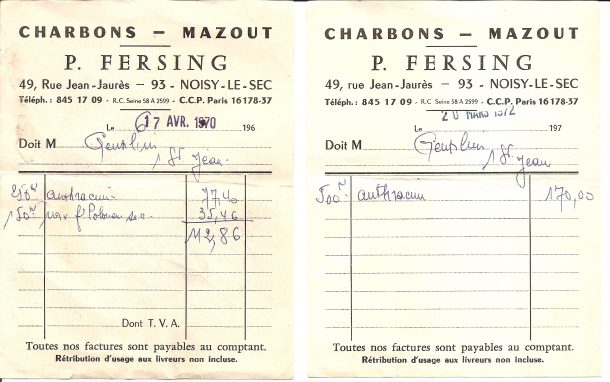 CHARBONS — MAZOUT
P. FERSING
49, Rue Jean-Jaurès — 93 - NOISY-LE-SEC
Téléph.: 845 17 09 - R.C. Seine 58 A 2599 - C.C.P. Paris 16178-37
Le 17 AVR. 1970 196
Doit M
1 St Jean.
250 77,40
150 35,46
112,86
Dont T. V. A.
Toutes nos factures sont payables au comptant.
Rétribution d'usage aux livreurs non incluse.
CHARBONS — MAZOUT
P. FERSING
49, Rue Jean-Jaurès — 93 - NOISY-LE-SEC
Téléph.: 845 17 09 - R.C. Seine 58 A 2599 - C.C.P. Paris 16178-37
20 MARS 1972
Le 197
Doit M
1 St Jean
500 170,00
Toutes nos factures sont payables au comptant.
Rétribution d'usage aux livreurs non incluse.